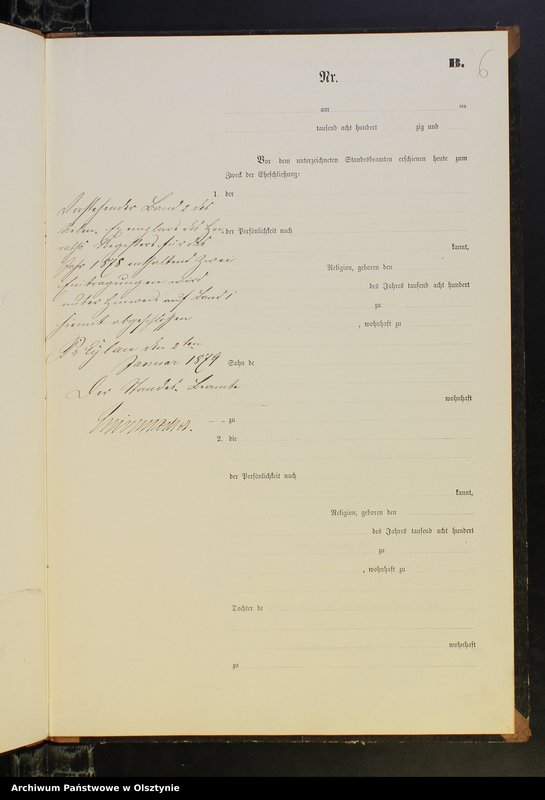 B.
6
Nr.
am ten
tausend acht hundert zig und
Vor dem unterzeichneten Standesbeamten erschienen heute zum
Zweck der Eheschließung:
1. der
der Persönlichkeit nach
kannt,
Religion, geboren den
des Jahres tausend acht hundert
zu
, wohnhaft zu
Sohn de
wohnhaft
zu
2. die
der Persönlichkeit nach
kannt,
Religion, geboren den
des Jahres tausend acht hundert
zu
, wohnhaft zu
Tochter de
wohnhaft
zu
Vorstehender Band 2 des
Neben-Exemplars des Hei-
raths Registers für das
Jahr 1878 enthaltend zwei
Eintragungen wird
unter Hinweis auf Band 1
hiermit abgeschlossen
Pr Eylau den 2ten
Januar 1879
Der Standes-Beamte
Archiwum Państwowe w Olsztynie